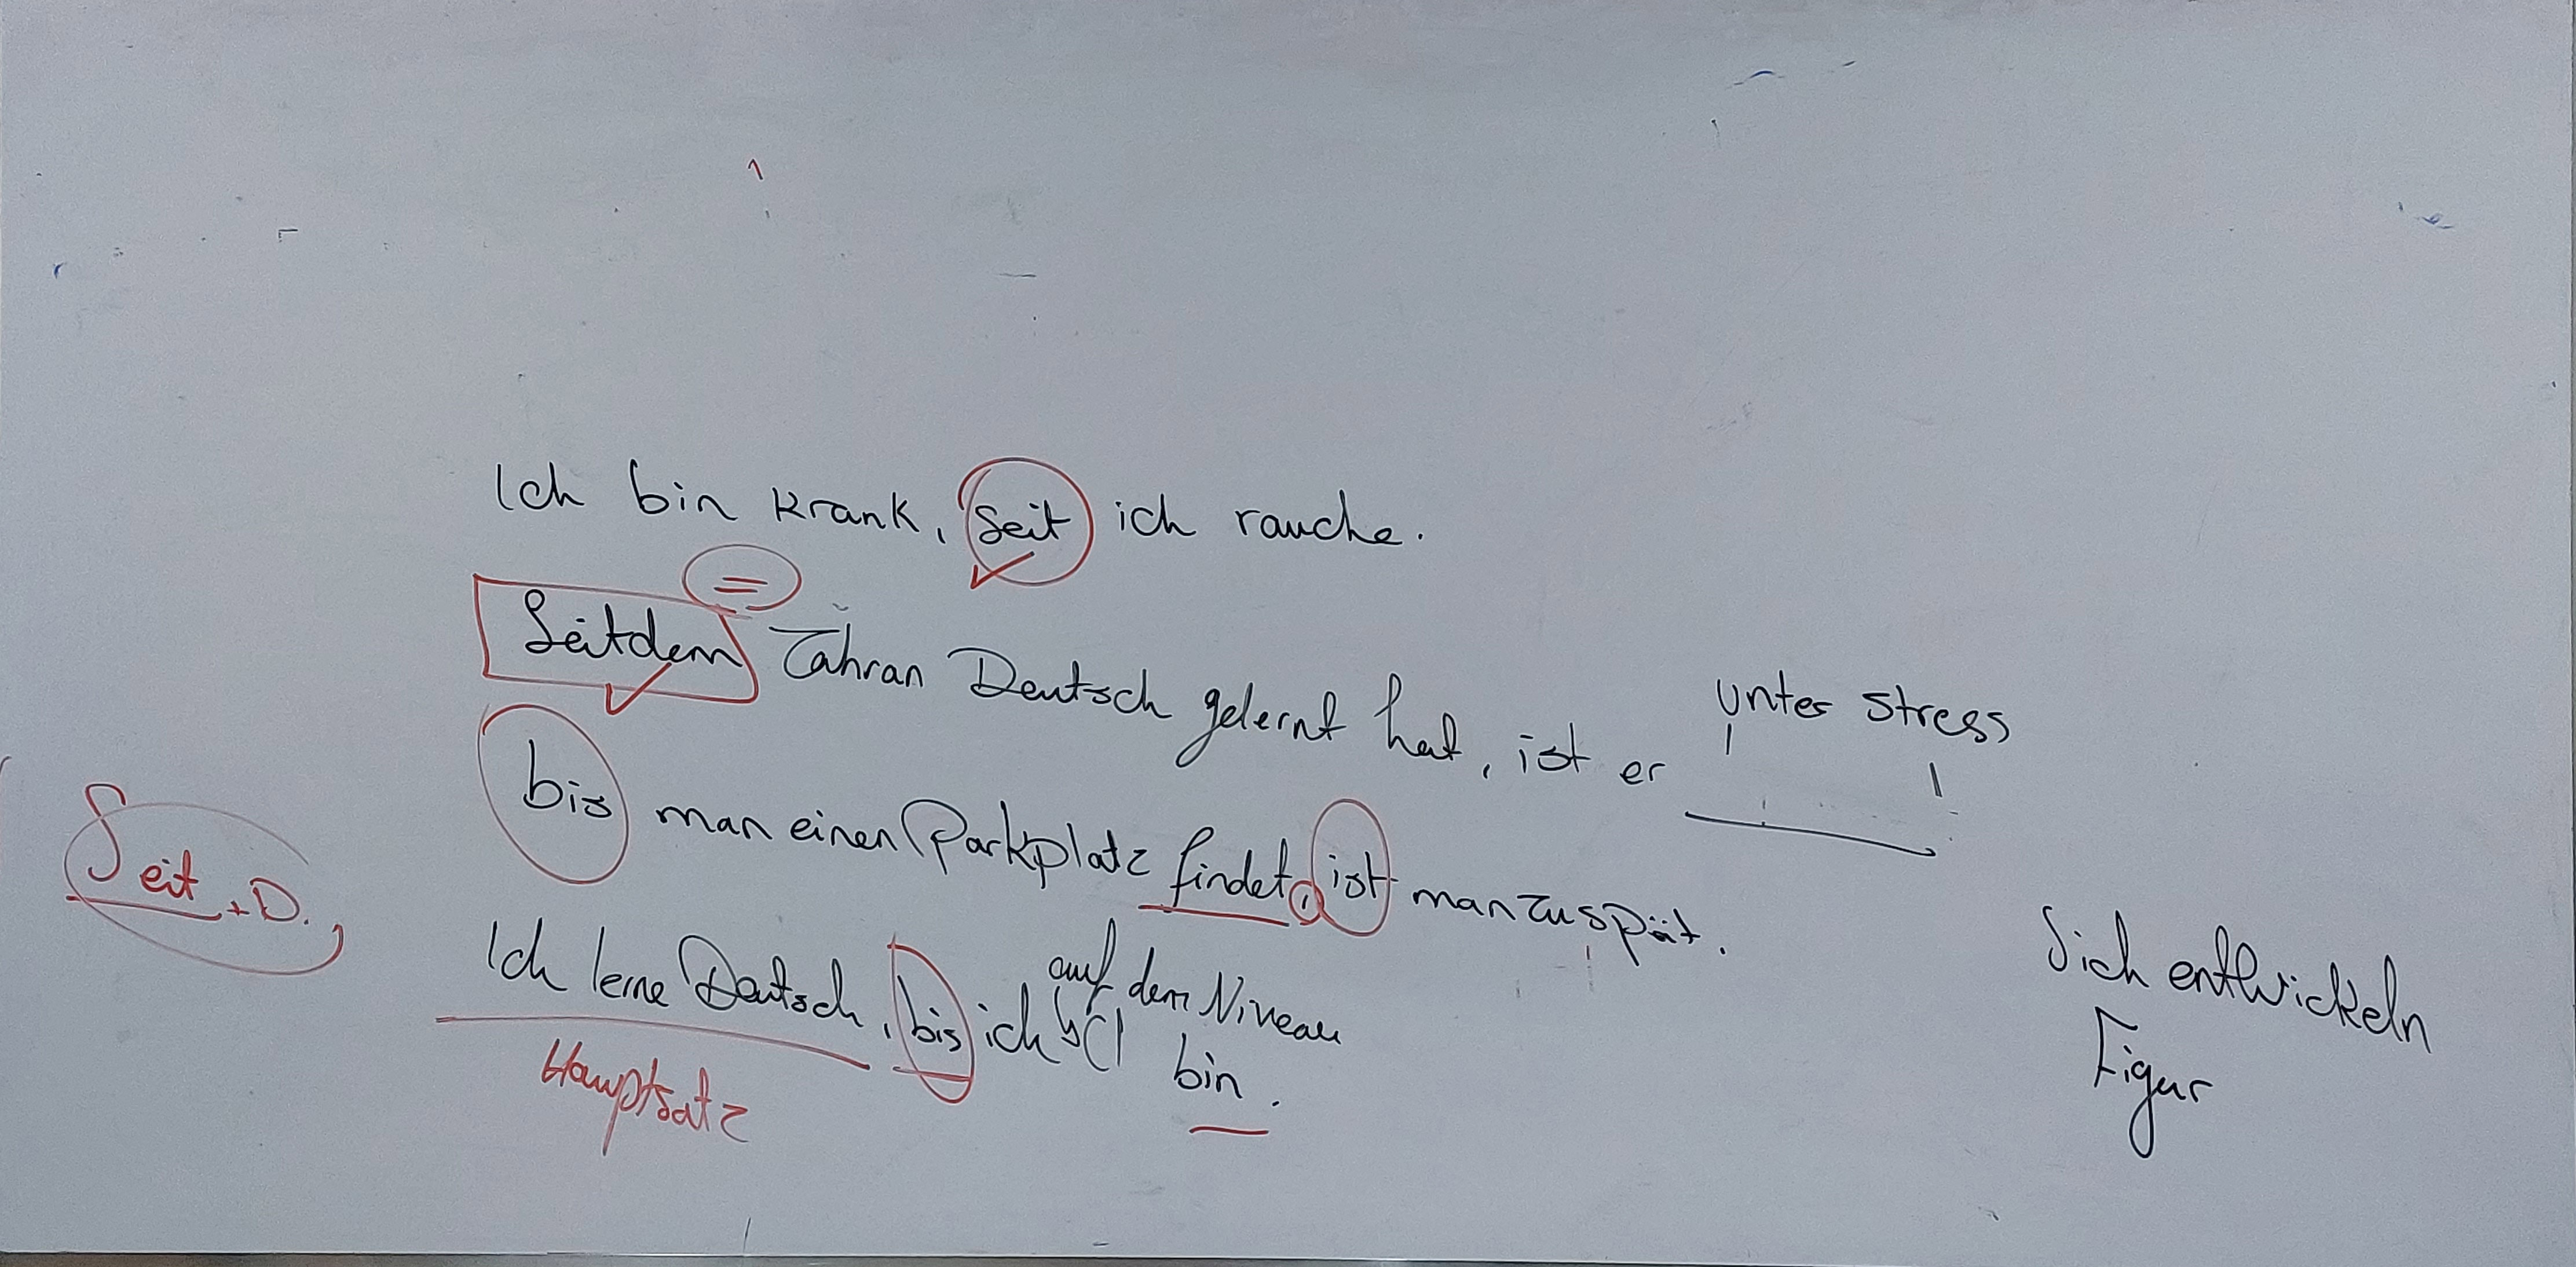 Ich bin krank, seit ich rauche.
=
Seitdem Tahran Deutsch gelernt hat, ist er unter stress
bis man einen Parkplatz findet, ist man zu spät.
Seit + D.
Ich lerne Deutsch, bis ich auf dem Niveau C1 bin.
Hauptsatz
Sich entwickeln
Figur